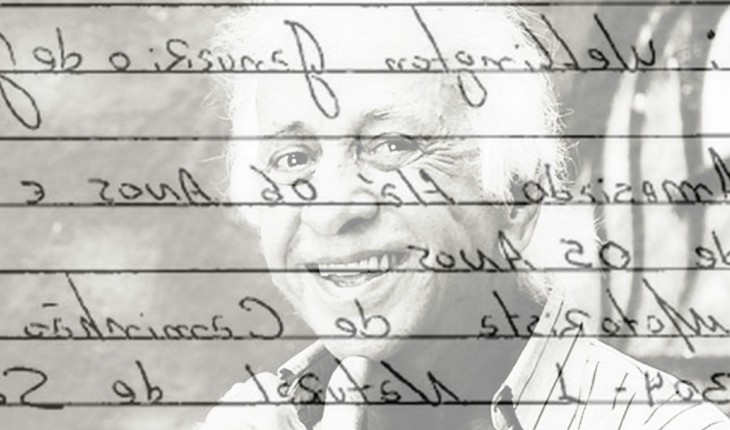 Wellington Januário de
Amasiado 06 Anos e
de 05 Anos
Motorista de Caminhão
Natural de